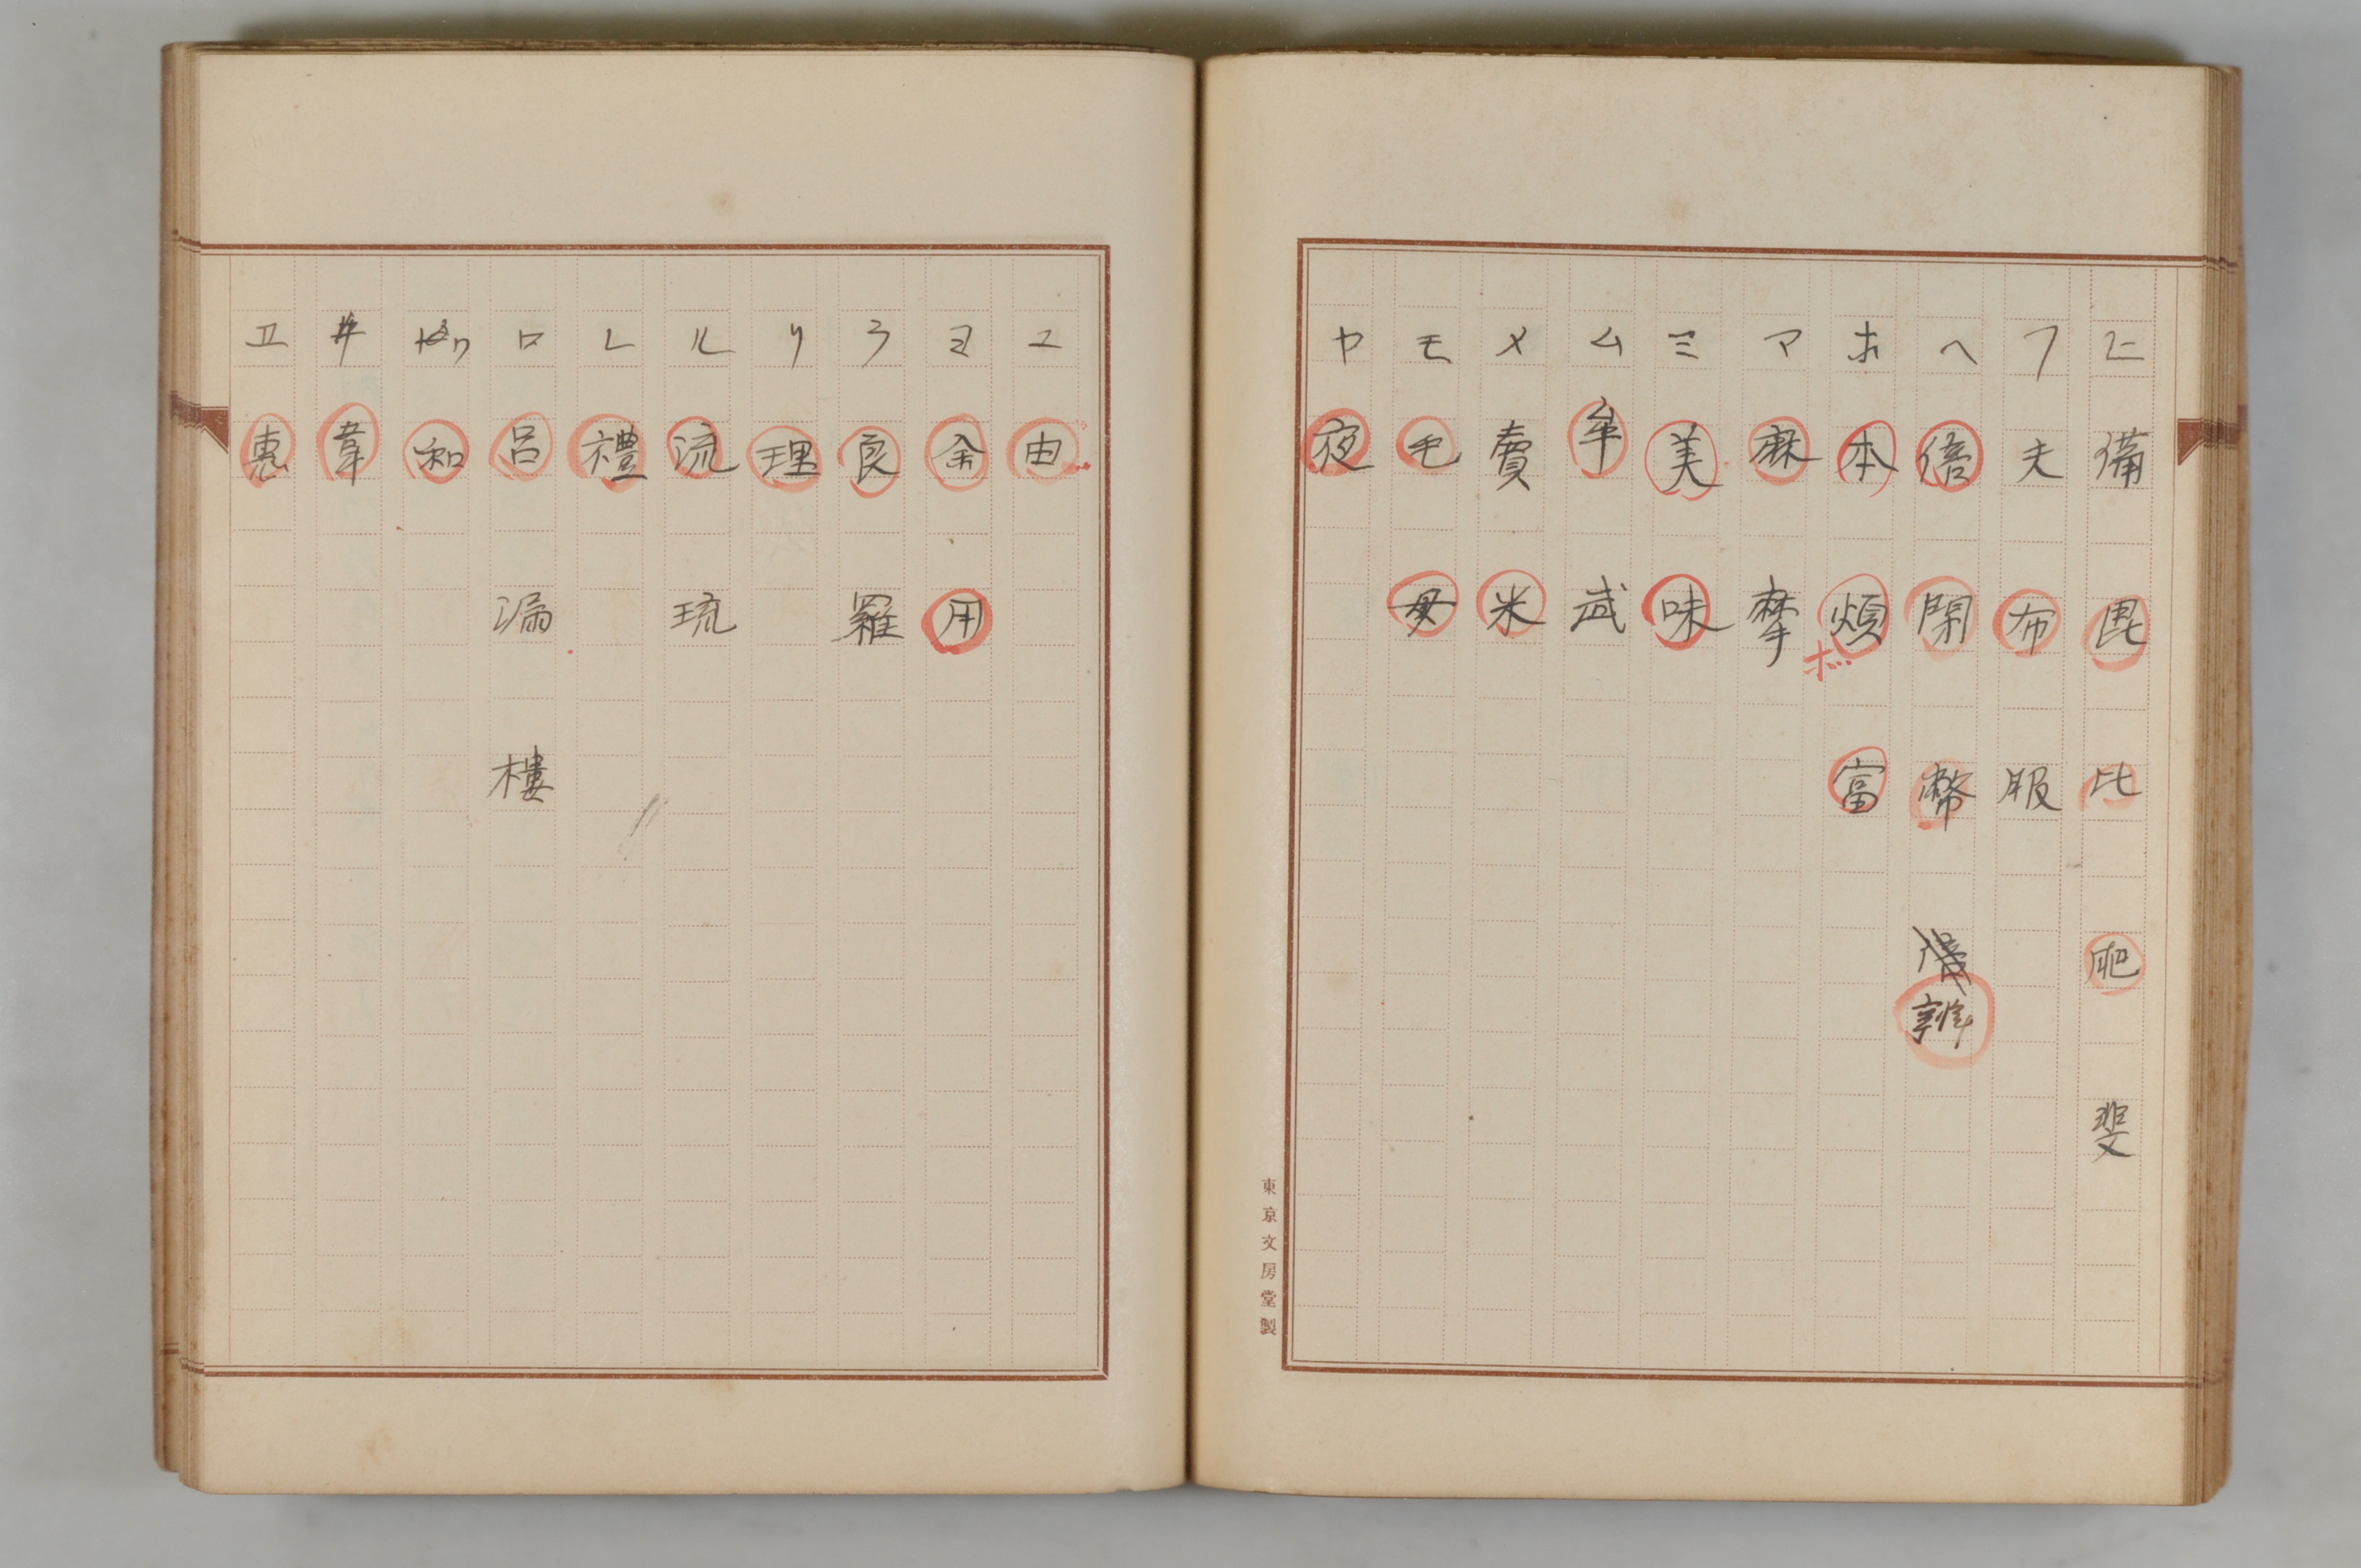 ヒ 備 毘 比 肥 斐
フ 夫 布 服
ヘ 倍 閇 幣 辨
ホ 本 煩 富
ボ
マ 麻 摩
ミ 美 味
ム 牟 武
メ 賣 米
モ 毛 母
ヤ 夜
東京文房堂製
ユ 由
ヨ 余 用
ラ 良 羅
リ 理
ル 流 琉
レ 禮
ロ 呂 漏 樓
ワ 和
井 韋
ヱ 惠